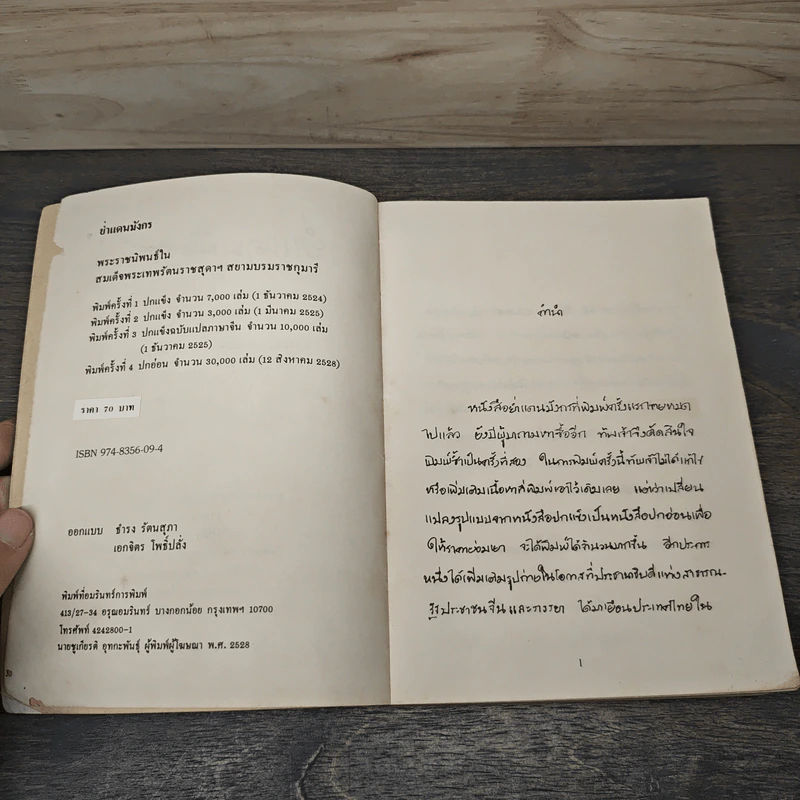 ย่ำแดนมังกร
พระราชนิพนธ์ใน
สมเด็จพระเทพรัตนราชสุดาฯ สยามบรมราชกุมารี
พิมพ์ครั้งที่ 1 ปกแข็ง จำนวน 7,000 เล่ม (1 ธันวาคม 2524)
พิมพ์ครั้งที่ 2 ปกแข็ง จำนวน 3,000 เล่ม (1 มีนาคม 2525)
พิมพ์ครั้งที่ 3 ปกแข็งฉบับแปลภาษาจีน จำนวน 10,000 เล่ม
(1 ธันวาคม 2525)
พิมพ์ครั้งที่ 4 ปกอ่อน จำนวน 30,000 เล่ม (12 สิงหาคม 2528)
ราคา 70 บาท
ISBN 974-8356-09-4
ออกแบบ ธำรง รัตนสุภา
เอกจิตร โพธิ์ปลั่ง
พิมพ์ที่อมรินทร์การพิมพ์
413/27-34 อรุณอมรินทร์ บางกอกน้อย กรุงเทพฯ 10700
โทรศัพท์ 4242800-1
นายชูเกียรติ อุทกะพันธุ์ ผู้พิมพ์ผู้โฆษณา พ.ศ. 2528
คำนำ
หนังสือย่ำแดนมังกรที่พิมพ์ครั้งแรกขายหมด
ไปแล้ว ยังมีผู้มาถามหาซื้ออีก ข้าพเจ้าจึงตัดสินใจ
พิมพ์ซ้ำเป็นครั้งที่สอง ในการพิมพ์ครั้งนี้ข้าพเจ้าไม่ได้แก้ไข
หรือเพิ่มเติมเนื้อหาที่พิมพ์เอาไว้เดิมเลย แต่ว่าเปลี่ยน
แปลงรูปแบบจากหนังสือปกแข็งเป็นหนังสือปกอ่อนเพื่อ
ให้ราคาย่อมเยา จะได้พิมพ์ได้จำนวนมากขึ้น อีกประการ
หนึ่งได้เพิ่มเติมรูปถ่ายในโอกาสที่ประธานาธิบดีแห่งสาธารณ-
รัฐประชาชนจีนและภรรยา ได้มาเยือนประเทศไทยใน
1